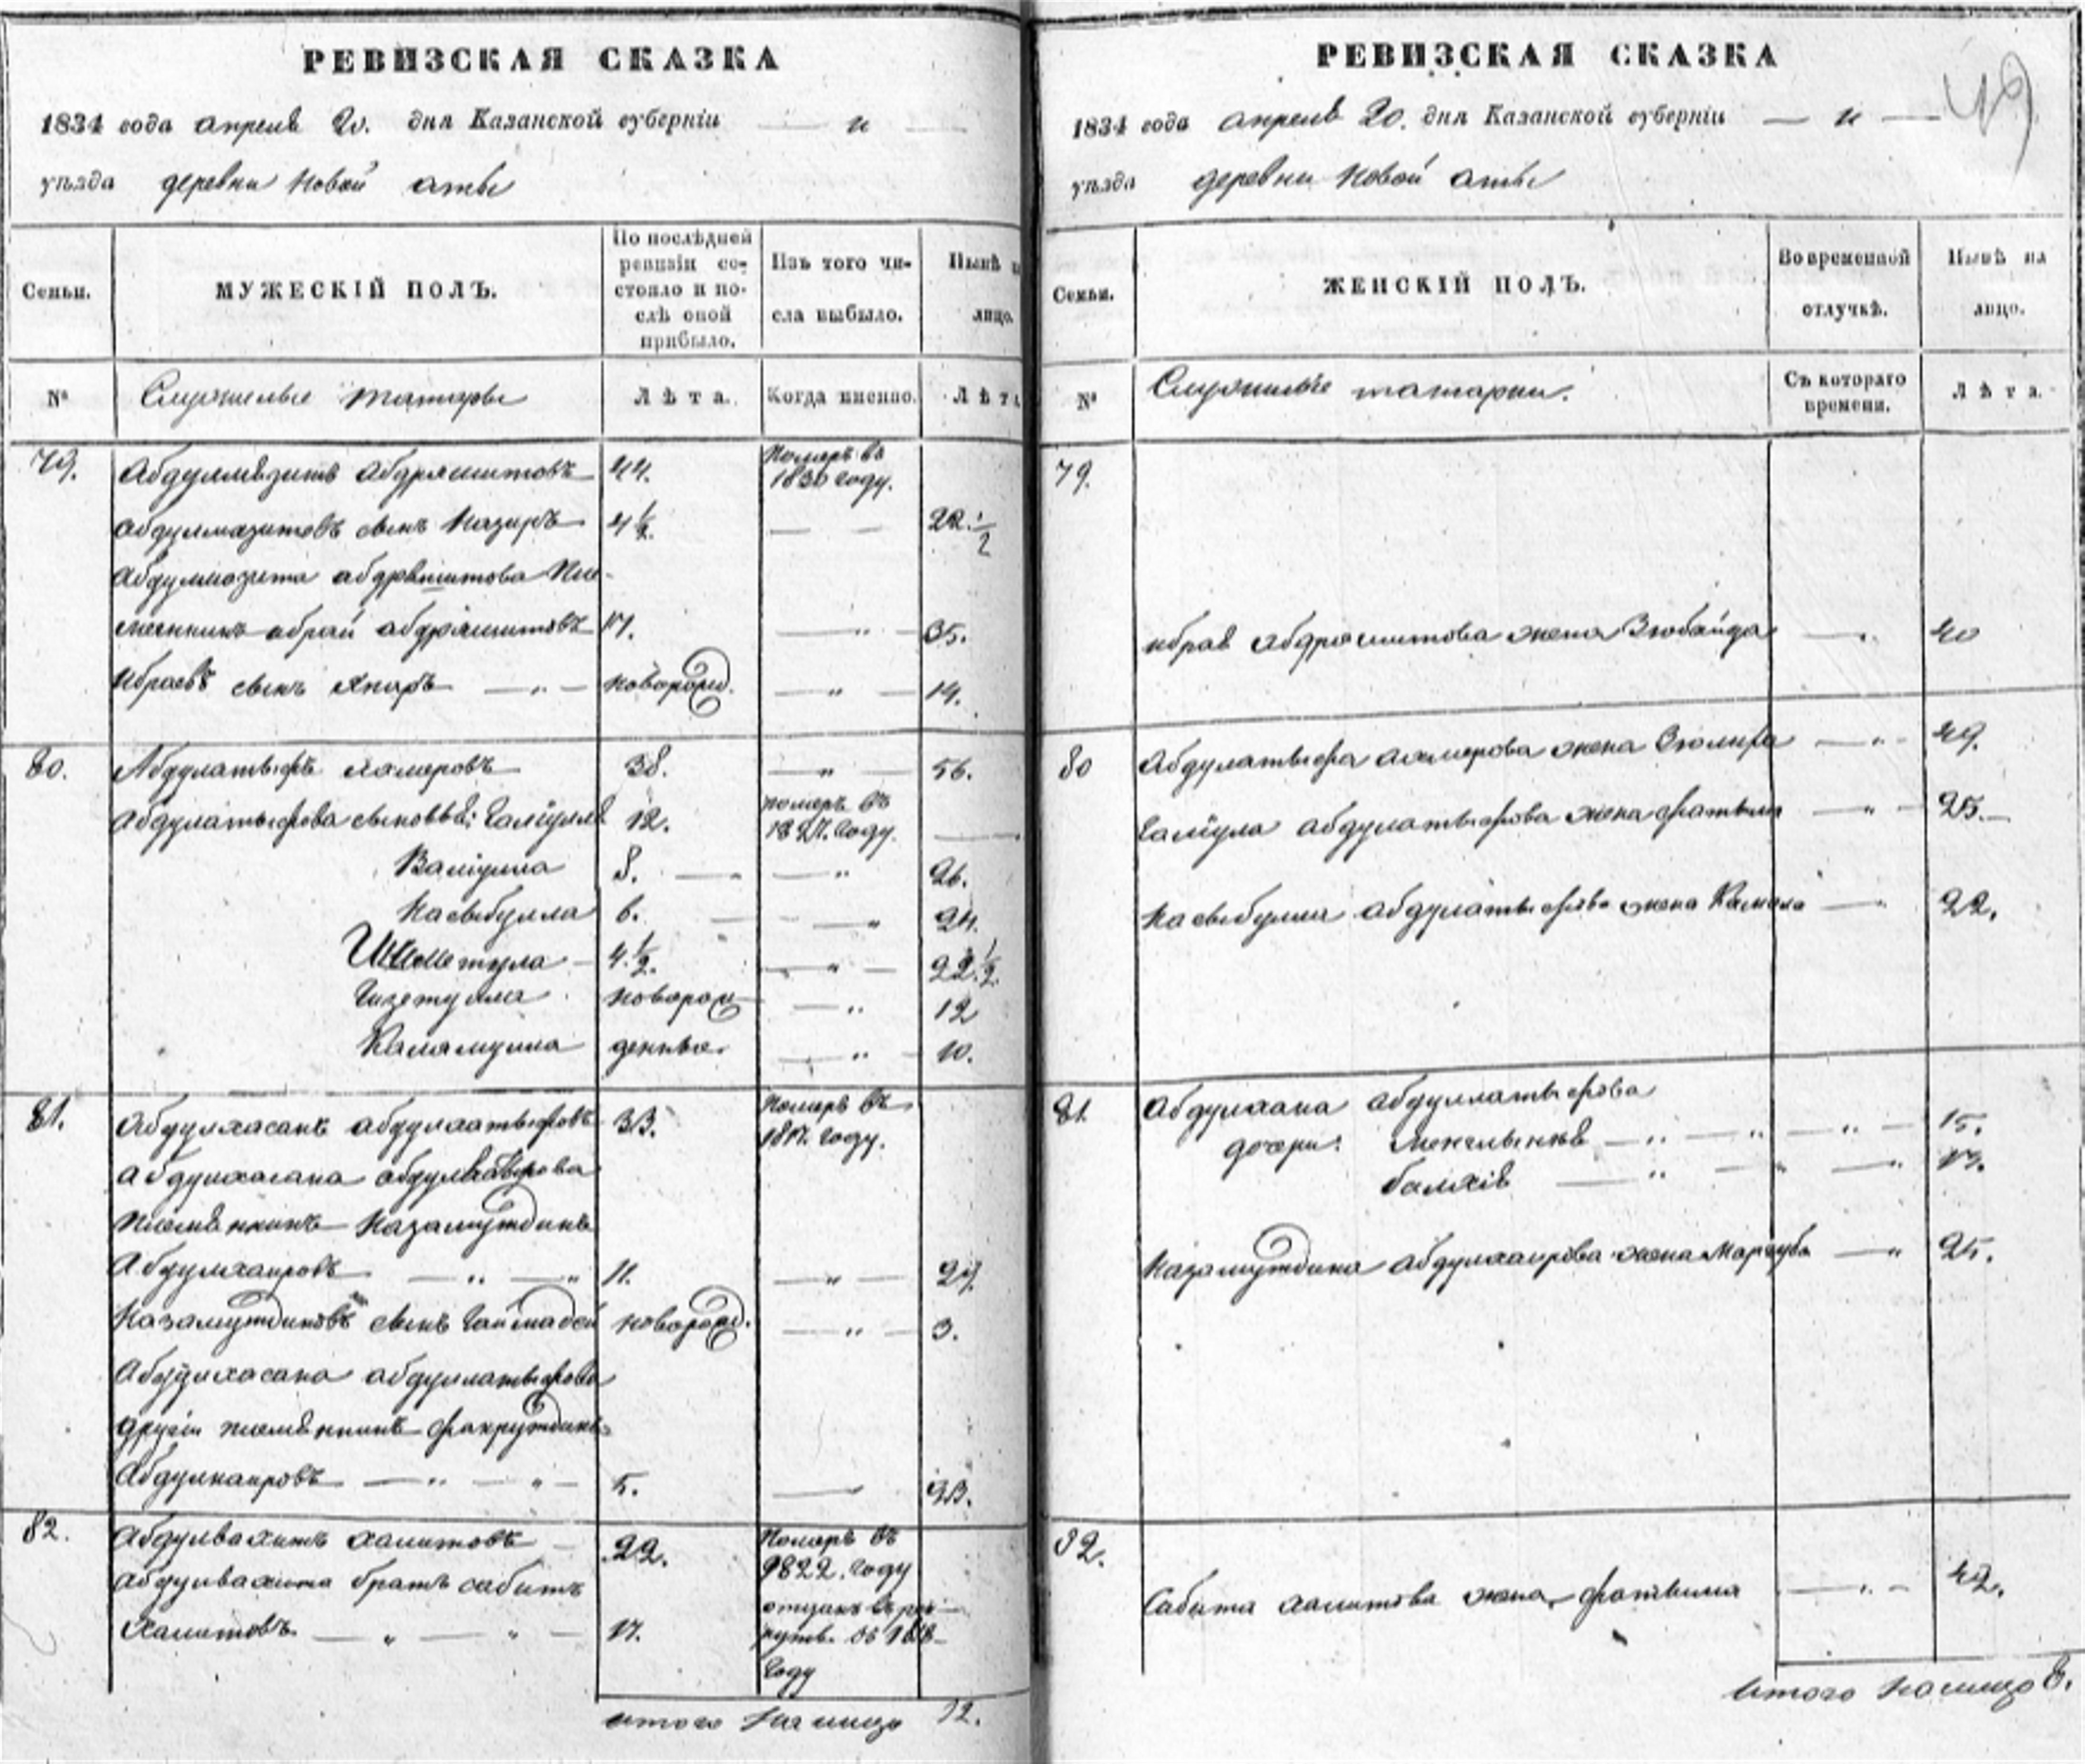 РЕВИЗСКАЯ СКАЗКА
1834 года апреля 20. дня Казанской губерніи — и —
уѣзда деревни Новой аты
Семьи.
МУЖЕСКІЙ ПОЛЪ.
По послѣдней ревизіи состояло и послѣ оной прибыло.
Изъ того числа выбыло.
Нынѣ
лицо.
№
Служилые татары
Лѣта.
Когда именно.
Лѣта
79. Абдулмязитъ абдряшитовъ 44. Померъ въ 1830 году.
абдулмазитовъ сынъ Назиръ 4 1/2. — — 22. 1/2
абдулмазита абдряшитова пле-
менникъ ибрай абдряшитовъ 17. — " — 35.
Ибраевъ сынъ — " — новорож. — " — 14.
80. Абдулатыфъ 38. — " — 56.
абдулатыфова сыновья: Галіулла 12. померъ въ 1827. году. —
Валіулла 8. — " — " 26.
Насыбулла 6. — — " 24.
4. 1/2. — " — 22. 1/2.
Гизетулла новорож — " 12
Каламулла денные. — " — 10.
81. Абдулхасанъ абдуллатыфовъ 33. Померъ въ 1817. году.
абдулхасана
племянникъНазамутдинъ
Абдулхаировъ — " — " 11. — " — 29.
Назамутдиновъ сынъ новорож. — " — 3.
Абдулхасана абдуллатыфова
другіи племянникъ фахрутдинъ
Абдулхаировъ — " — " — 5. — 23.
82. абдулвахитъ халитовъ — 22. Померъ въ 1822. году
абдулвахита братъ сабитъ
Халитовъ. — " — " — 17. отданъ въ рек-
рутъ. въ 1818-
году
итого на лицо 12.
РЕВИЗСКАЯ СКАЗКА
49
1834 года апреля 20. дня Казанской губерніи — и —
уѣзда деревни Новой аты
Семьи.
ЖЕНСКІЙ ПОЛЪ.
Во временной отлучкѣ.
Нынѣ на лицо.
№
Служилые татарки.
Съ котораго времени.
Лѣта.
79.
ибрая абдряшитова жена Зюбайда — " 40
80 Абдулатыфа жена — " — 49.
Галіулла абдулатыфова жена фатыма — " — 25. —
Насыбулла абдулатыфова жена Камала — " 22.
81. Абдулхана абдуллатыфова
дочери: — " — " — " — 15.
балхія — " — " — " 13.
Назамутдина абдулхаирова жена Маргуба — " 25.
82.
Сабита халитова жена фатыма — " — 42.
итого на лицо 8.